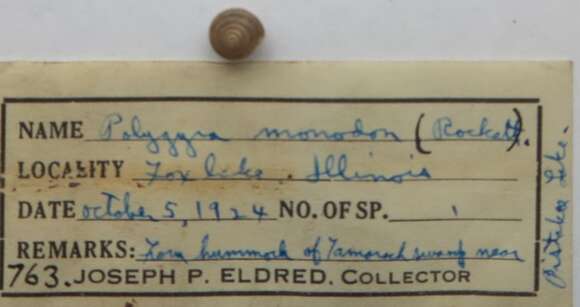 NAME Polygyra monodon (Rackett).
LOCALITY Fox lake. Illinois
DATE October 5, 1924 NO. OF SP. 1
REMARKS: hummock of Tamarack swamp near
Pistakee Lake.
763. JOSEPH P. ELDRED. COLLECTOR